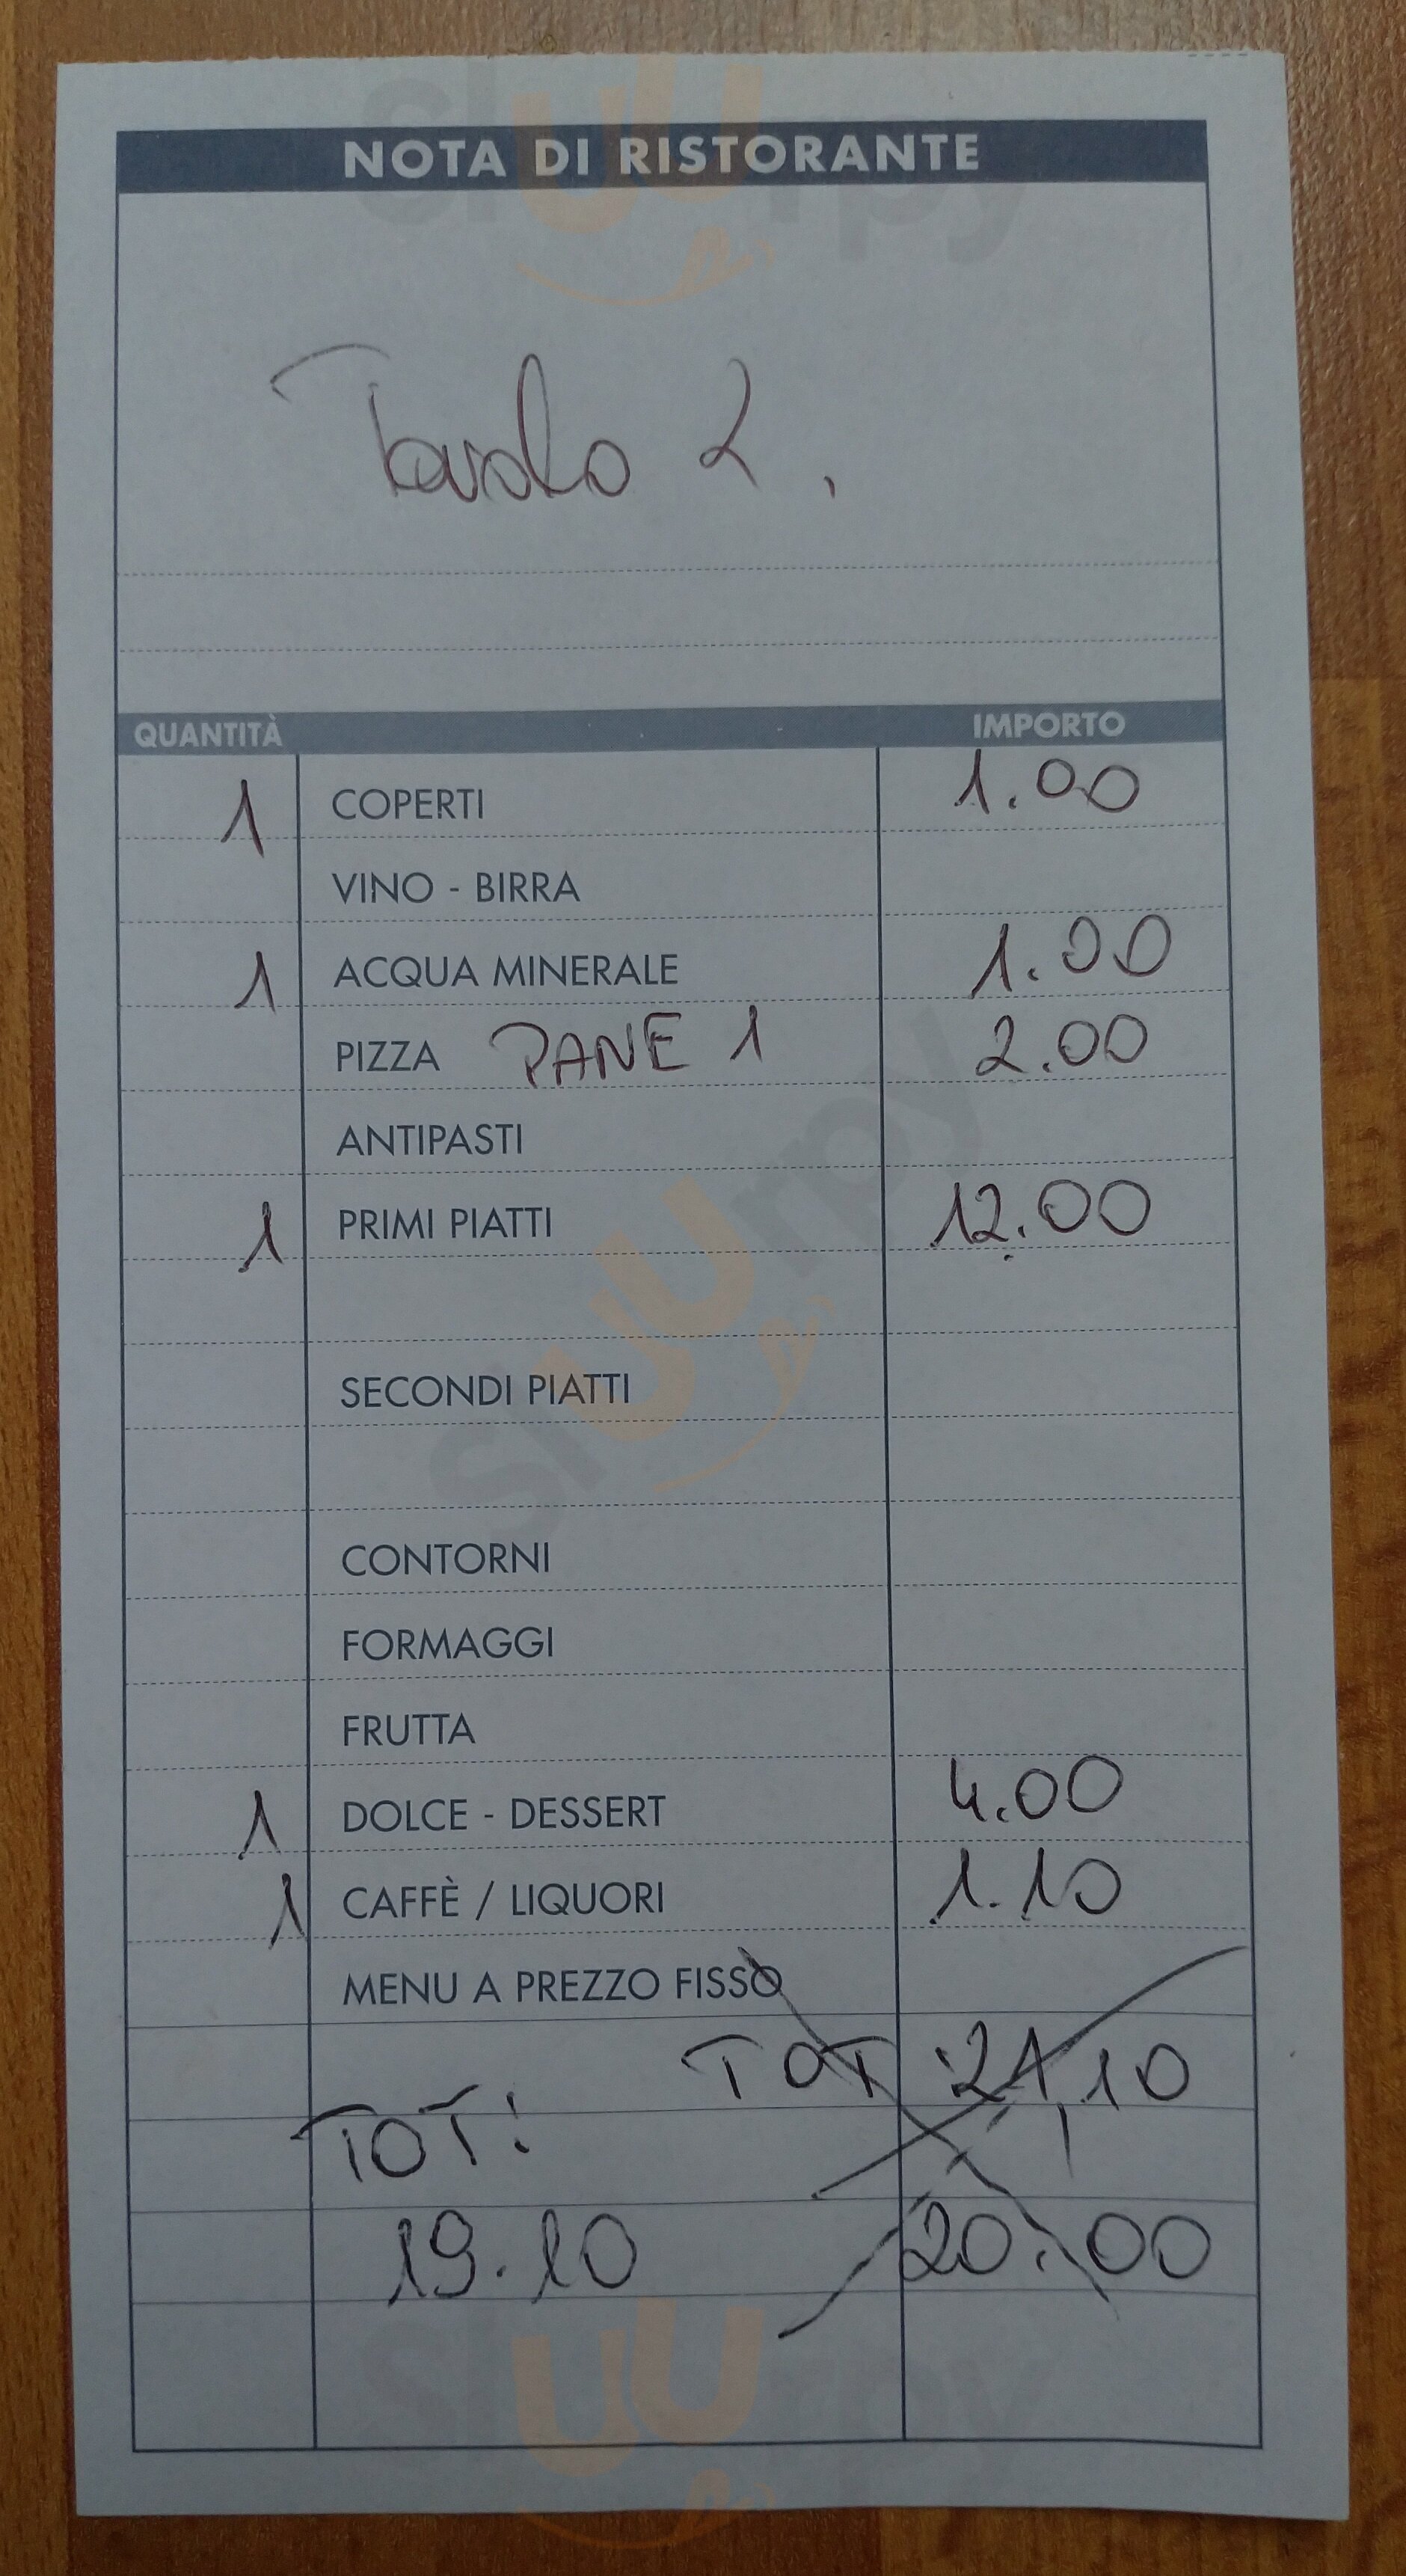 NOTA DI RISTORANTE
Tavolo 2.
QUANTITÀ IMPORTO
1 COPERTI 1.00
VINO - BIRRA
1 ACQUA MINERALE 1.00
PIZZA PANE 1 2.00
ANTIPASTI
1 PRIMI PIATTI 12.00
SECONDI PIATTI
CONTORNI
FORMAGGI
FRUTTA
1 DOLCE - DESSERT 4.00
1 CAFFÈ / LIQUORI 1.10
MENU A PREZZO FISSO
TOT 21,10
TOT:
19.10 20.00
sluurpy
sluurpy
sluurpy